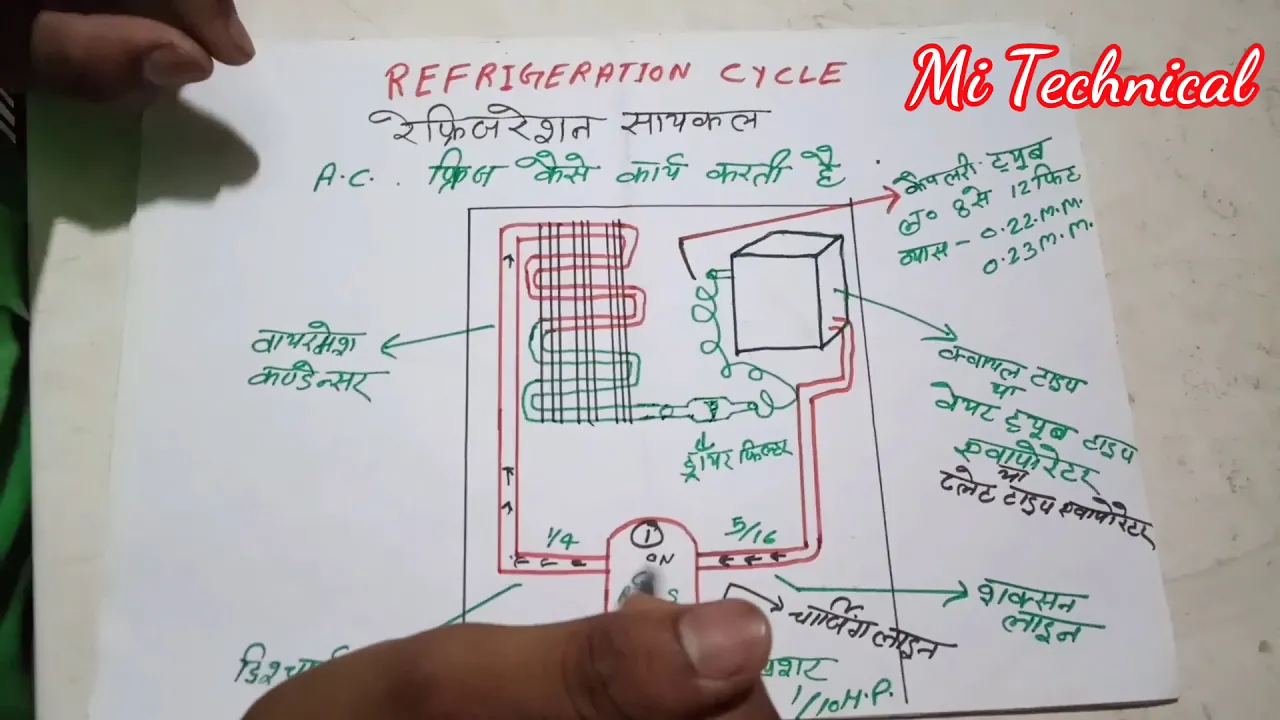 Mi Technical
REFRIGERATION CYCLE
रेफ्रिजरेशन सायकल
A.C. फ्रिज कैसे कार्य करती है
कैपलरी ट्यूब
ल० 8 से 12 फिट
व्यास - 0.22 m.m.
0.23 m.m.
वायरमेश
कण्डेन्सर
क्वायल टाइप
या
वेपट ट्यूब टाइप
इवापोरेटर
या
प्लेट टाइप इवापोरेटर
ड्रायर फिल्टर
1/4
5/16
1
ON
C
S
शक्सन
लाइन
चार्जिंग लाइन
1/10 H.P.